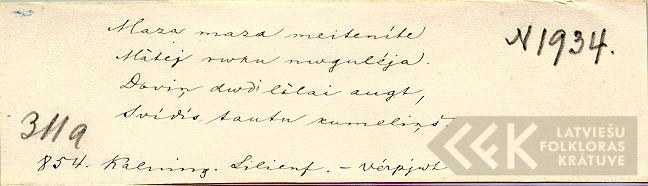 Maza maza meitenite
N1934.
Mātej rwku nwguléja.
Dovin dwd lēlai augt,
Svidis tautu kumeliņš.
311a
854. Kalning. Lilienf. – vērpjwt
LATVIEŠU
FOLKLORAS
KRĀTUVE